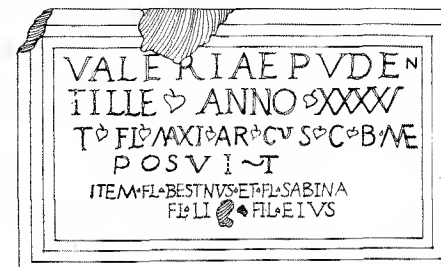 VALERIAE PVDEN
TILLE ANNO XXXXV
T FL MAXI AR CVS C B M E
POSVIT
ITEM FL BESTNVS ET FL SABINA
FL LI FIL EIVS